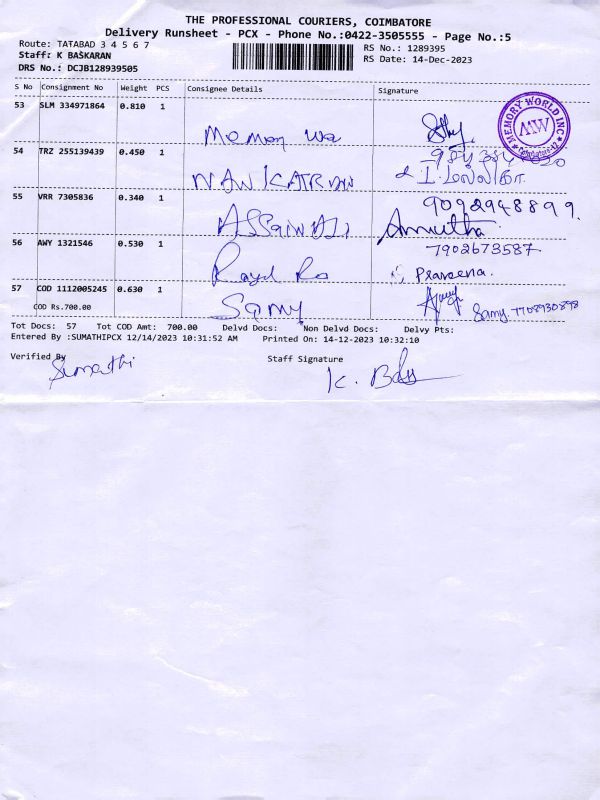 THE PROFESSIONAL COURIERS, COIMBATORE
Delivery Runsheet - PCX - Phone No.:0422-3505555 - Page No.:5
Route: TATABAD 3 4 5 6 7
RS No.: 1289395
Staff: K BASKARAN
RS Date: 14-Dec-2023
DRS No.: DCJB128939505
S No Consignment No Weight PCS Consignee Details Signature
53 SLM 334971864 0.810 1
Memory
MEMORY WORLD INC
MW
Coimbatore-12
54 TRZ 255139439 0.450 1
55 VRR 7305836 0.340 1
9092948899.
Amrutha
56 AWY 1321546 0.530 1
7902673587
Praveena.
57 COD 1112005245 0.630 1
COD Rs.700.00
Samy
Samy. 7708930898
Tot Docs: 57 Tot COD Amt: 700.00 Delvd Docs: Non Delvd Docs: Delvy Pts:
Entered By :SUMATHIPCX 12/14/2023 10:31:52 AM Printed On: 14-12-2023 10:32:10
Verified By
Sumathi
Staff Signature
K. Bas